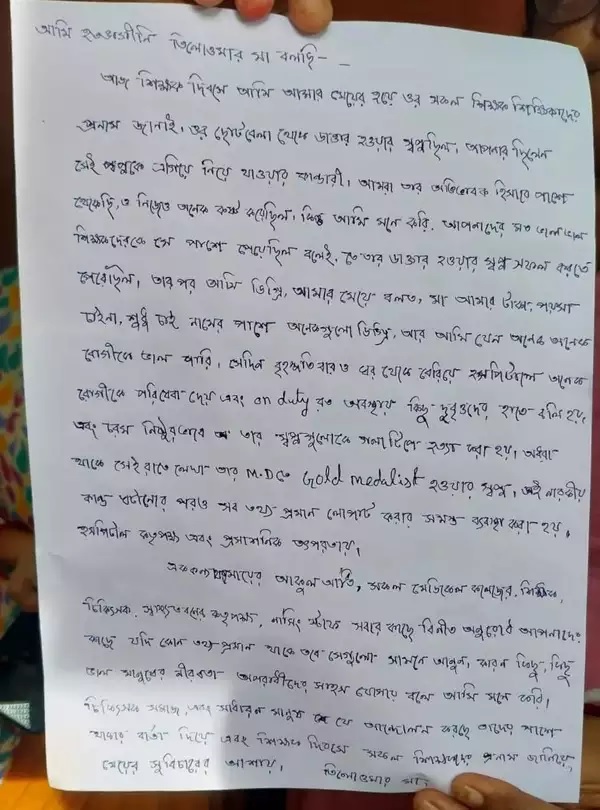 আমি হতভাগীনি তিলোত্তমার মা বলছি- - -
আজ শিক্ষক দিবসে আমি আমার মেয়ের হয়ে ওর সকল শিক্ষক শিক্ষিকাদের
প্রনাম জানাই, ওর ছোটবেলা থেকে ডাক্তার হওয়ার স্বপ্ন ছিল, আপনারা ছিলেন
সেই স্বপ্নকে এগিয়ে নিয়ে যাওয়ার কান্ডারী, আমরা তার অভিভাবক হিসাবে পাশে
থেকেছি, ও নিজেও অনেক কষ্ট করেছিল, কিন্তু আমি মনে করি. আপনাদের মত ভাল ভাল
শিক্ষকদেরকে সে পাশে পেয়েছিল বলেই, সে তার ডাক্তার হওয়ার স্বপ্ন সফল করতে
পেরেছিল, আমার মেয়ে বলত, মা আমার টাকা-পয়সা
চাইনা, শুধু চাই নামের পাশে অনেকগুলো ডিগ্রি, আর আমি যেন অনেক অনেক
রোগীকে ভাল পারি, সেদিন বৃহস্পতিবারও ঘর থেকে বেরিয়ে হসপিটালে অনেক
রোগীকে পরিষেবা দেয় এবং on duty রত অবস্থায় কিছু দুর্বৃত্তদের হাতে বলি হয়,
এবং চরম নিষ্ঠুরভাবে তার স্বপ্নগুলোকে গলা টিপে হত্যা করা হয়, অধরা
থাকে সেই রাতে লেখা তার M.D তে Gold medalist হওয়ার স্বপ্ন, এই নারকীয়
কান্ড ঘটানোর পরও সব তথ্য প্রমান লোপাট করার সমস্ত ব্যবস্থা করা হয়,
হসপিটাল কতৃপক্ষ এবং প্রসাশনিক তৎপরতায়,
মায়ের আকুল আর্তি, সকল মেডিকেল কলেজের, শিক্ষক,
চিকিৎসক, স্বাস্থ্যভবনের কতৃপক্ষ, নার্সিং স্টাফ সবার কাছে বিনীত অনুরোধ আপনাদের
কাছে যদি কোন তথ্য প্রমান থাকে তবে সেগুলো সামনে আনুন, কারন কিছু কিছু
ভাল মানুষের নীরবতা অপরাধীদের সাহস যোগায় বলে আমি মনে করি।
চিকিৎসক সমাজ, এবং সাধারন মানুষ যে আন্দোলন করছে তাদের পাশে
থাকার বার্তা দিয়ে এবং শিক্ষক দিবসে সকল শিক্ষকদের প্রনাম জানিয়ে,
মেয়ের সুবিচারের আশায়, তিলোত্তমার মা,